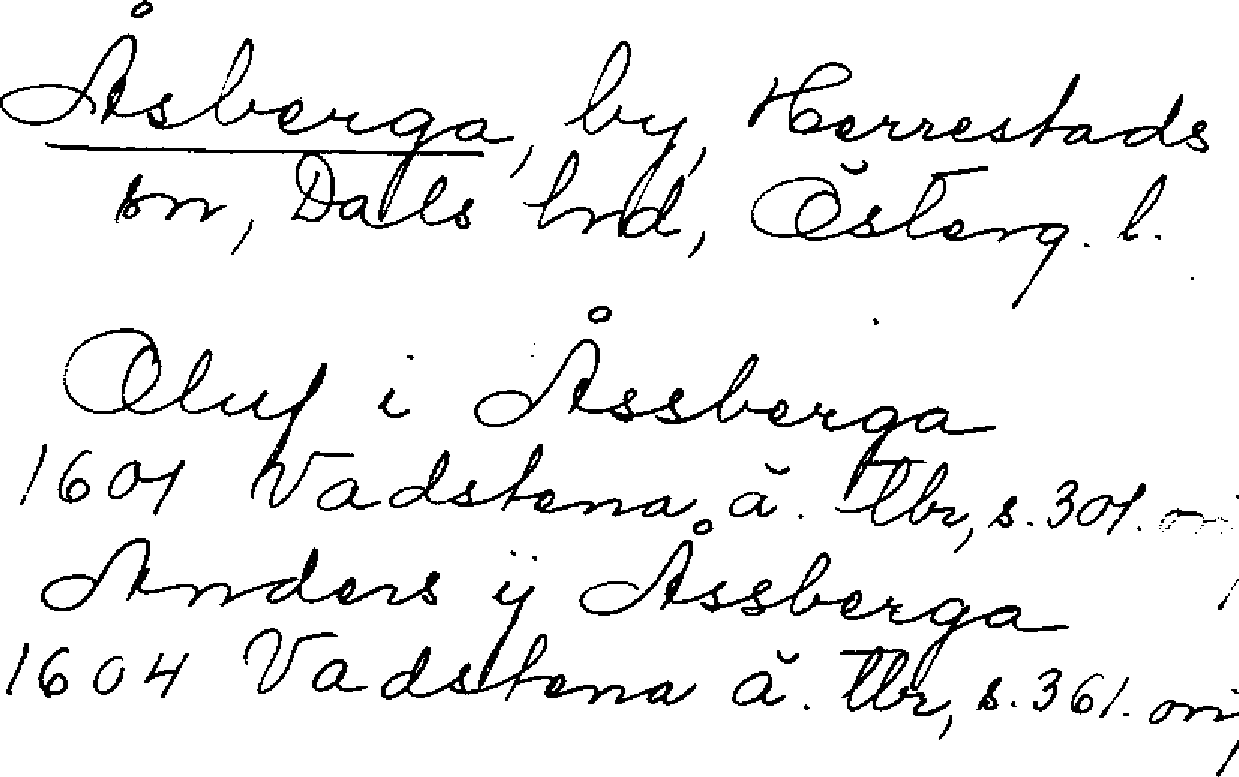 Åsberga, by, Herrestads
sn, Dals hrd, Österg. l.
Oluf i Åssberga
1601 Vadstena ä. tbr, s. 301. ori
Anders ij Åssberga
1604 Vadstena ä. tbr, s. 361. ori